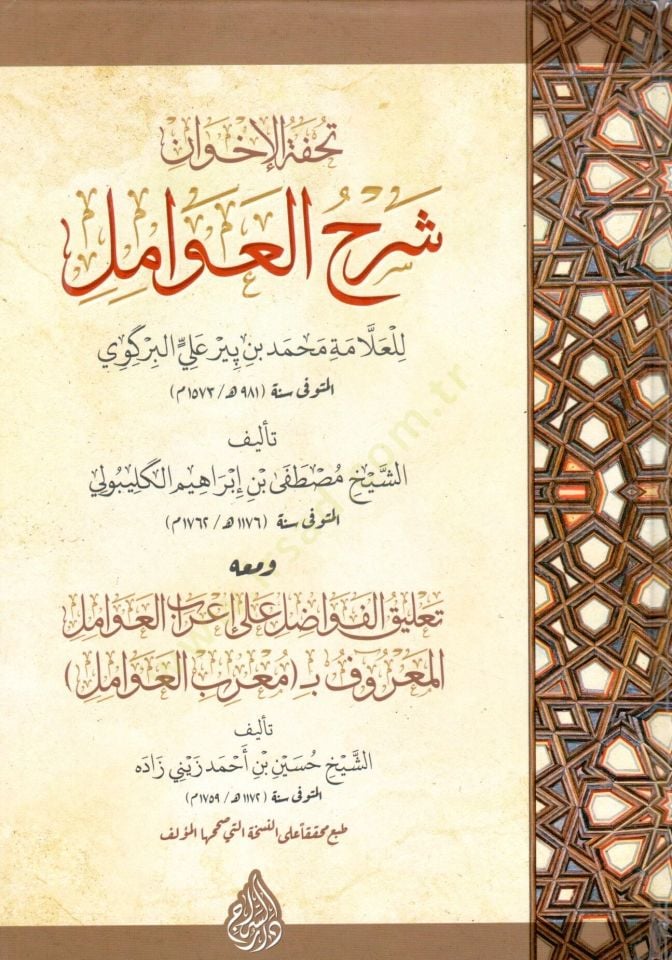 تحفة الإخوان
شَرْحُ العَوَامِلِ
لِلْعَلَّامَة مُحَمَّد بْنِ پِيرْ عَلِيّ البِرْكَوِي
المتوفى سنة (٩٨١ هـ / ١٥٧٣ م)
تأليف
الشَّيْخ مُصْطَفَى بْنِ إِبْرَاهِيم الگليبُولي
المتوفى سنة (١١٧٦ هـ / ١٧٦٢ م)
ومعه
تعليق الفواضل على إعراب العوامل
المعروف بـ (مُعْرِب العَوَامِلِ)
تأليف
الشَّيْخ حُسَيْن بْنِ أَحْمَد زَيْني زَادَه
المتوفى سنة (١١٧٢ هـ / ١٧٥٩ م)
طبع محققاً على النسخة التي صححها المؤلف
دار السراج